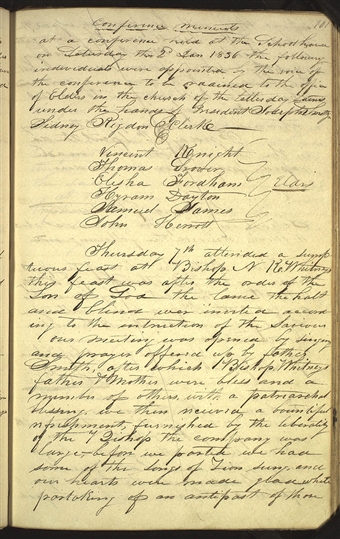 Conference minutes
at a conference held at the School house
on Saturday the 2d Jan 1836 the following
individuals were appointed by the voice of
the conference to be ordained to the office
of Elders in the church of the latterday saints
under the hands of President Joseph Smith
Sidney Rigdon Clerk
Vincent Knight
Thomas Grover
Elisha Fordham
Elders
Hyram Dayton
Samuel James
John Herrott
Thursday 7th attended a sump
tuous feast at Bishop N K. Whitneys
this feast was after the order of the
Son of God the lame the halt
and blind wer invited accord
ing to the instruction of the Saviour
our meeting was opened by singing
and prayer offered up by father
Smith, after which Bishop Whitneys
father & Mother were bless and a
number of others, with a patriarchal
blessing, we then received a bountiful
refreshment, furnished by the liberality
of the Bishop the company was
large, before we parted we had
some of the Songs of Zion sung, and
our hearts were made glad while
partaking of an antipast of those